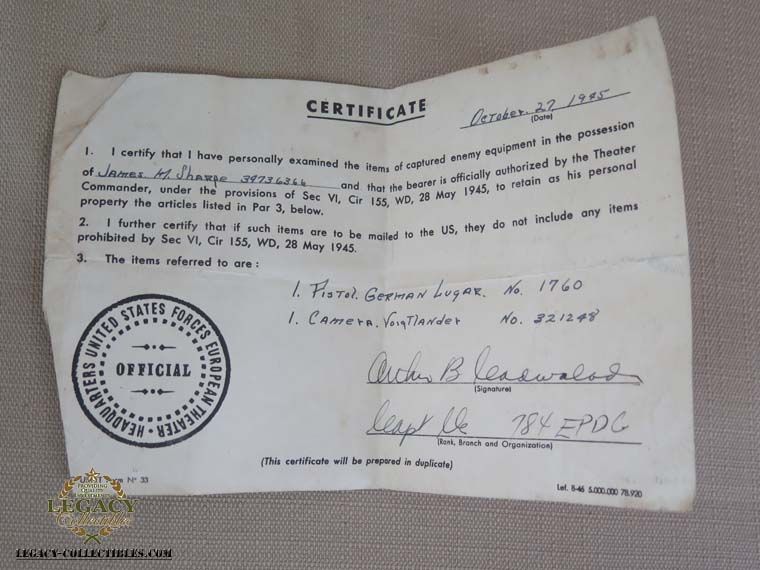 CERTIFICATE
October. 27 1945
(Date)
1. I certify that I have personally examined the items of captured enemy equipment in the possession
of James M. Sharpe 39736366 and that the bearer is officially authorized by the Theater
Commander, under the provisions of Sec VI, Cir 155, WD, 28 May 1945, to retain as his personal
property the articles listed in Par 3, below.
2. I further certify that if such items are to be mailed to the US, they do not include any items
prohibited by Sec VI, Cir 155, WD, 28 May 1945.
3. The items referred to are :
1. Pistol. German Lugar. No. 1760
1. Camera. Voigtlander No. 321248
HEADQUARTERS UNITED STATES FORCES EUROPEAN THEATER
OFFICIAL
Arthur B
(Signature)
Capt 784 EPDG
(Rank, Branch and Organization)
(This certificate will be prepared in duplicate)
N° 33
Lef. 8-46 5.000.000 78.920
PROVIDING
LEGACY
Collectibles
LEGACY-COLLECTIBLES.COM